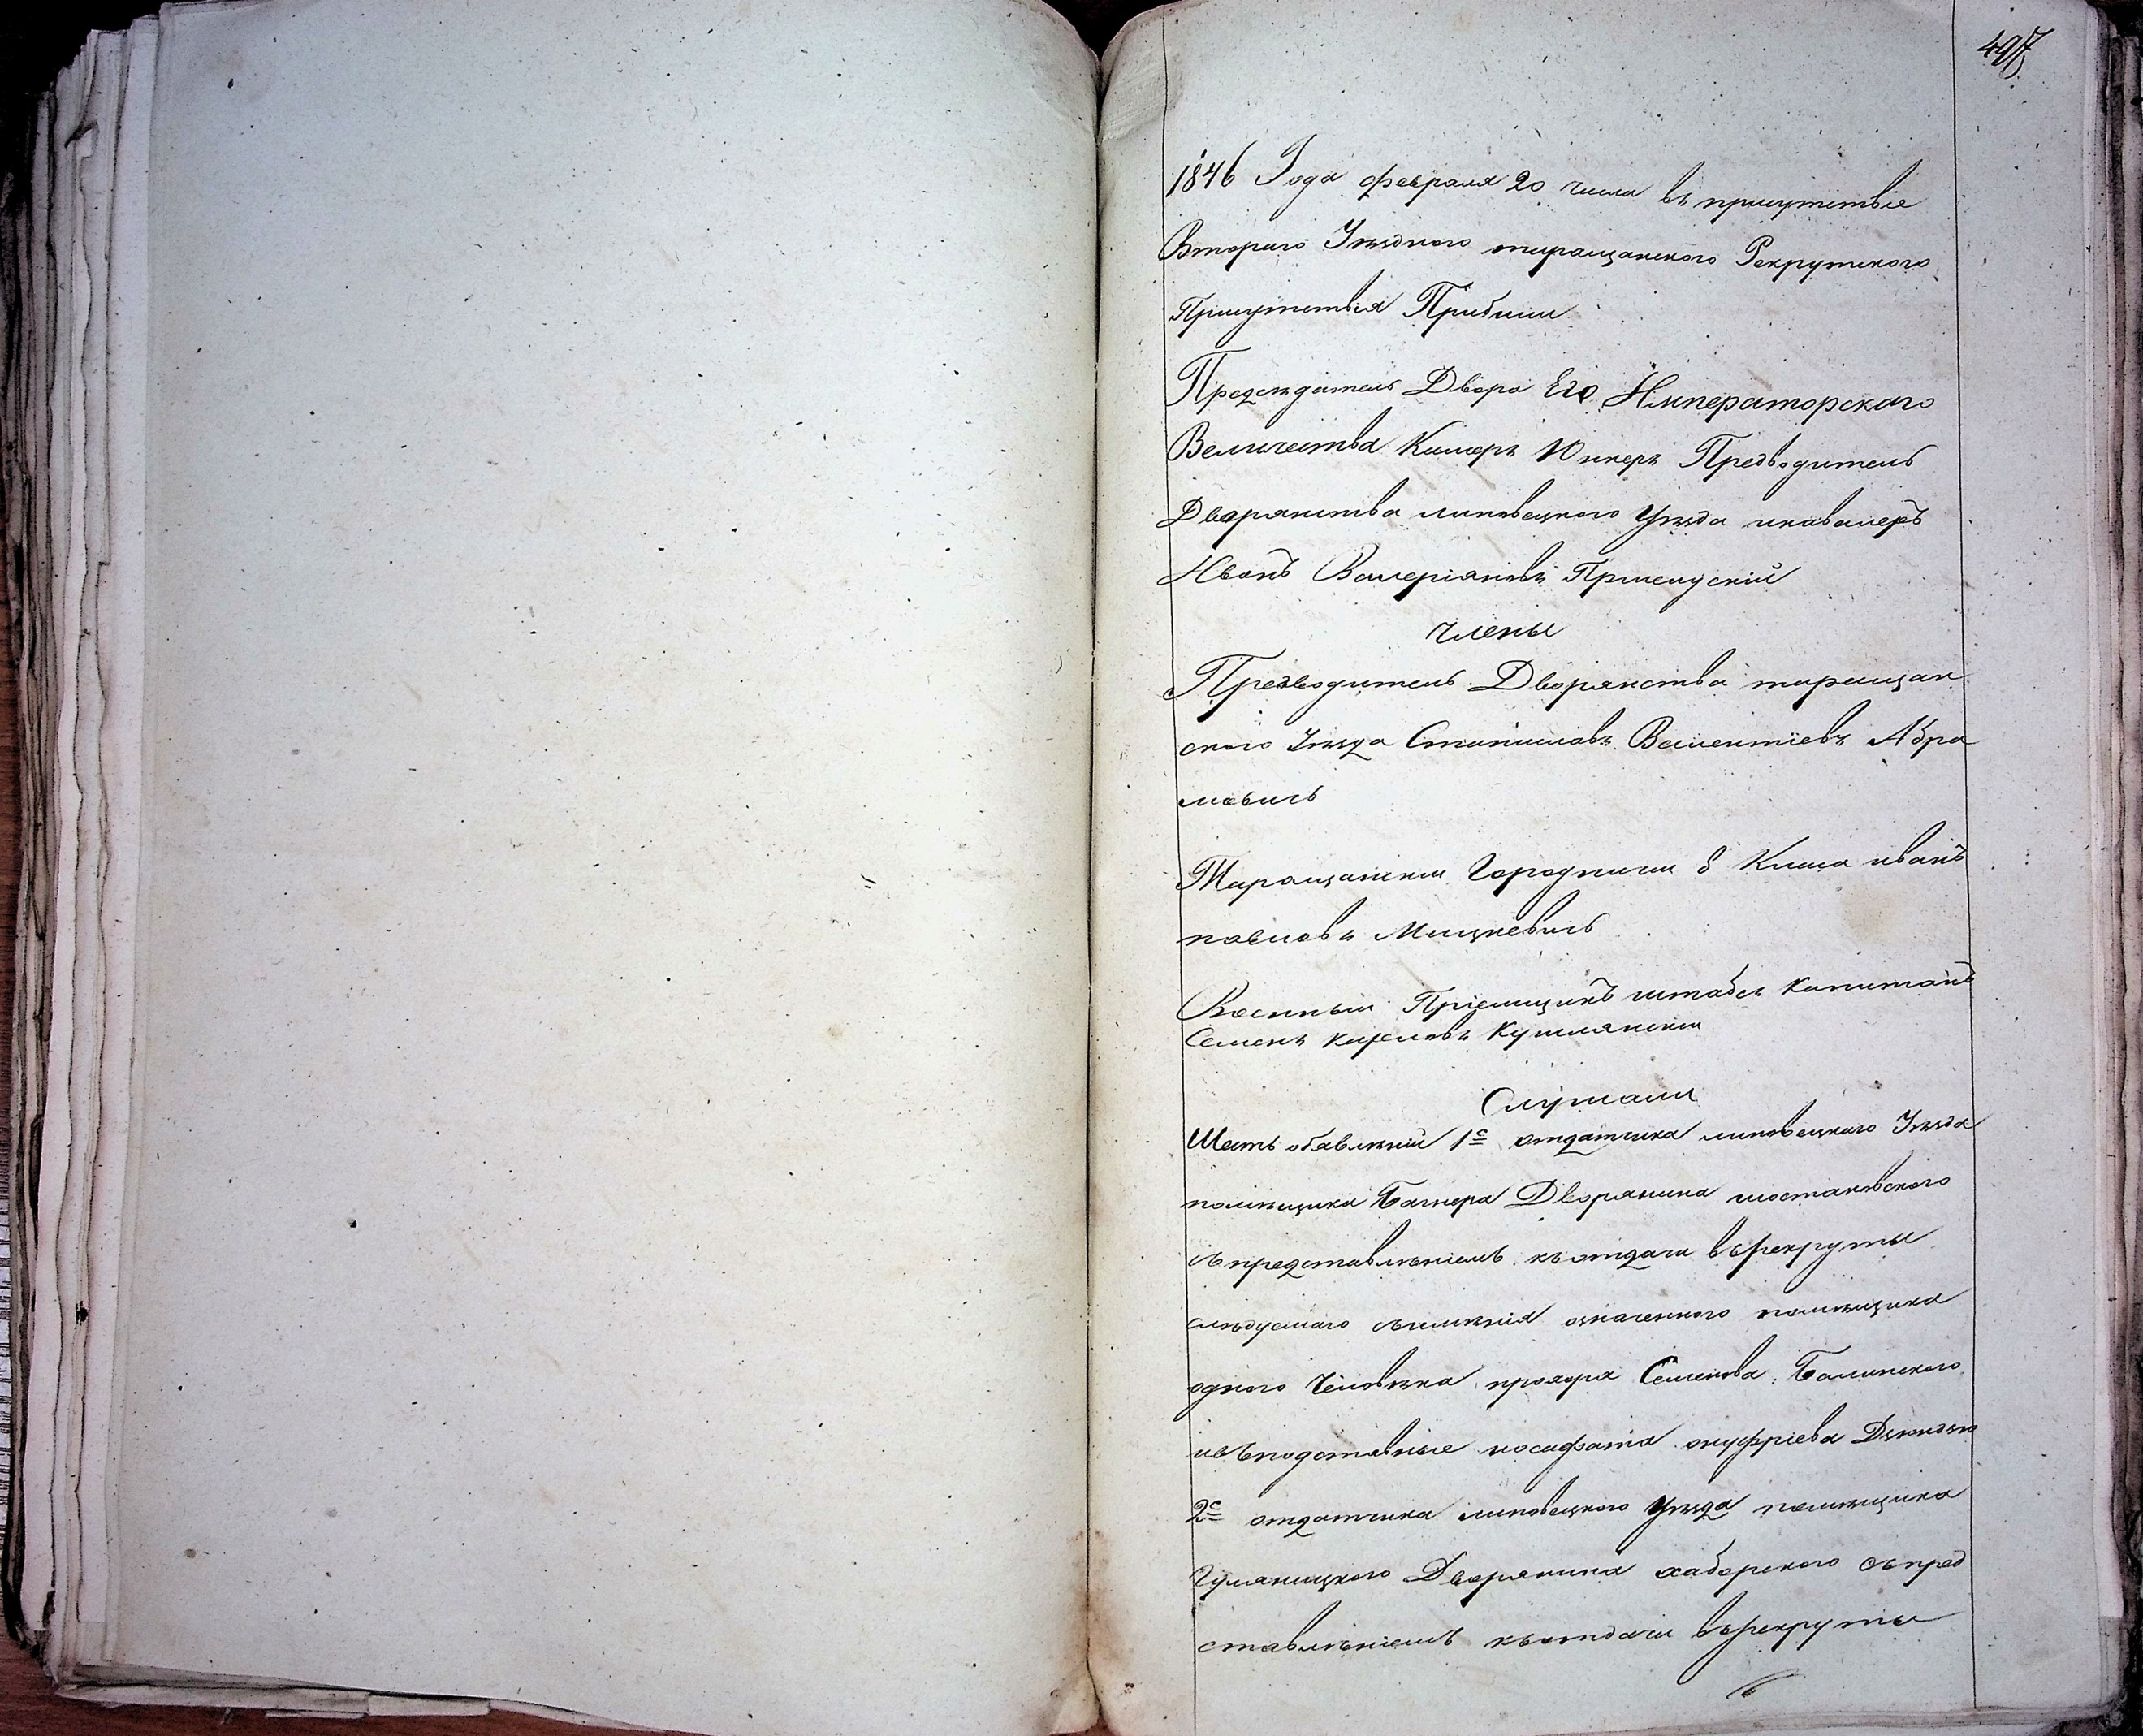 497
1846 Года февраля 20 числа въ присутствіе
Втораго Уѣзднаго таращанского Рекрутского
Присутствія Прибыли
Предсѣдатель Двора Его Императорскаго
Величества Камеръ Юнкеръ Предводитель
Дворянства липовецкого Уѣзда икавалеръ
Иванъ Валеріановъ
Члены
Предводитель Дворянства таращан
ского Уѣзда Станиславъ Валентіевъ Абра
мовичь
Таращански Городничи 8 Класа иванъ
павловъ Мицкевичь
Военныи Пріемщикъ штабсъ Капитанъ
Семенъ
Слушали
Шесть обявленій 1е отдатчика липовецкаго Уѣзда
помѣщика Дворянина шостаковского
съпредставленіемъ къотдачи върекруты
слѣдуемаго съимѣнія означенного помѣщика
одного Человѣка прохора Семенова Балинского
ивъподставные иосафата онуфріева
2е отдатчика липовецкого Уѣзда помѣщика
Дворянина хаберского съпред
ставленіемъ къотдачи върекруты